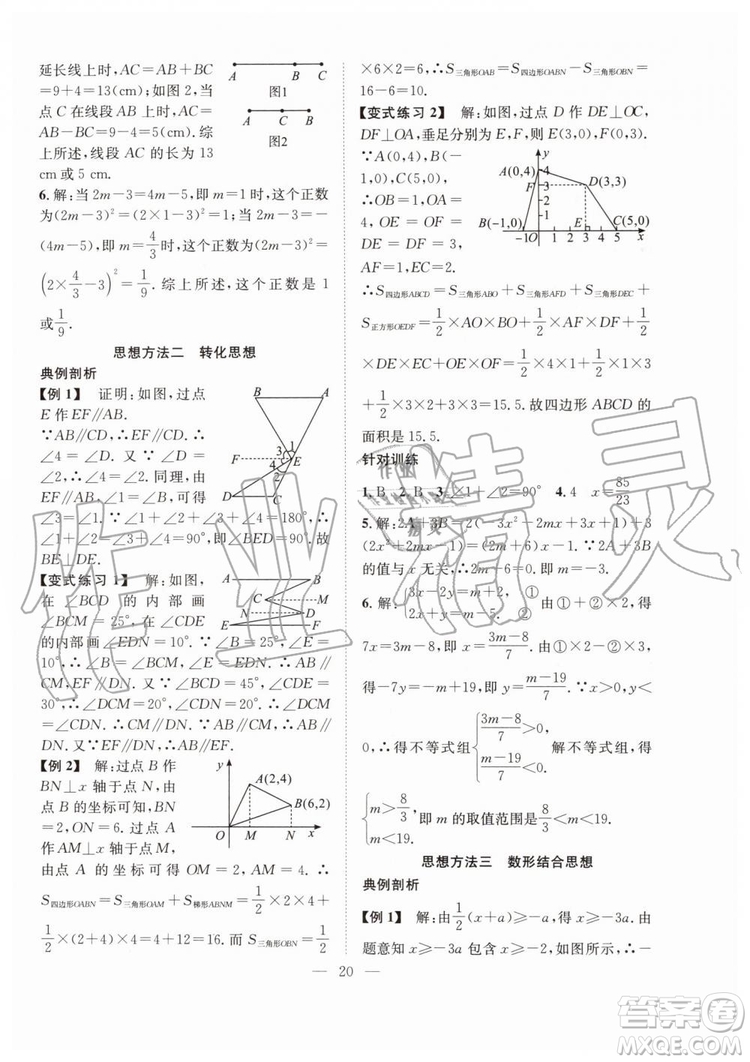 延长线上时,AC=AB+BC
=9+4=13(cm);如图 2,当
点 C 在线段 AB 上时,AC=
AB-BC=9-4=5(cm). 综
上所述,线段 AC 的长为 13
cm 或 5 cm.
A B C
图1
A C B
图2
6. 解:当 2m-3=4m-5,即 m=1 时,这个正数
为(2m-3)²=(2×1-3)²=1;当 2m-3=-
(4m-5),即 m=4/3 时,这个正数为(2m-3)²=
(2×4/3-3)²=1/9. 综上所述,这个正数是 1
或 1/9.
思想方法二 转化思想
典例剖析
【例 1】 证明:如图,过点
E 作 EF∥AB.
∵AB∥CD,∴EF∥CD,∴
∠4=∠D. 又∵∠D=∠2,
∴∠4=∠2. 同理,由
B A
F E
3 1
4 2
D C
∠3=∠1. ∵∠1+∠2+∠3+∠4=180°,∴
∠1+∠2=∠3+∠4=90°,即∠BED=90°,
故 BE⊥DE.
【变式练习 1】 解:如图,
在∠BCD 的内部画
∠BCM=25°,在∠CDE
的内部画∠EDN=10°. ∵∠B=25°,∠E=
10°,∴∠B=∠BCM,∠E=∠EDN,∴AB∥
CM,EF∥DN. 又∵∠BCD=45°,∠CDE=
30°,∴∠DCM=20°,∠CDN=20°,∴∠DCM
=∠CDN. ∴CM∥DN. 又∵AB∥CM,∴AB∥
DN. 又∵EF∥DN,∴AB∥EF.
A B
C M
N D
E F
【例 2】 解:过点 B 作
BN⊥x 轴于点 N,由
点 B 的坐标可知 BN
=2,ON=6. 过点 A
作 AM⊥x 轴于点 M,
由点 A 的坐标可得 OM=2,AM=4. ∴
S四边形OABN=S三角形OAM+S梯形ABNM=1/2×2×4+
1/2×(2+4)×4=4+12=16. 而 S三角形OBN=1/2
y
A(2,4)
B(6,2)
O M N x
×6×2=6,∴S三角形OAB=S四边形OABN-S三角形OBN=
16-6=10.
【变式练习 2】 解:如图,过点 D 作 DE⊥OC,
DF⊥OA,垂足分别为 E,F,则 E(3,0),F(0,3).
∵A(0,4),B(-
1,0),C(5,0),
∴OB=1,OA=
4,OE=OF=
DE=DF=3,
AF=1,EC=2.
y
A(0,4) 4
F 3
2
1
D(3,3)
B(-1,0) E C(5,0)
-1 O 1 2 3 4 5 x
∴S四边形ABCD=S三角形ABO+S三角形AFD+S三角形DEC+
S正方形OEDF=1/2×AO×BO+1/2×AF×FD+1/2
×DE×EC+OE×OF=1/2×4×1+1/2×1×
3+1/2×3×2+3×3=15.5. 故四边形 ABCD 的
面积是 15.5.
针对训练
1. B 2. B 3. ∠1+∠2=90° 4. 4 x=85/23
5. 解:2A+3B=2(-3x²-2mx+3x+1)+3
(2x²+2mx-1)=(2m+6)x-1. ∵2A+3B
的值与 x 无关,∴2m+6=0,即 m=-3.
6. 解:{3x-2y=m-2①, 2x+y=m-5②. 由①+②×2,得
7x=3m-8,即 x=(3m-8)/7. 由①×2-②×3,
得-7y=-m+19,即 y=(m-19)/7. ∵x>0,y<
0,∴得不等式组{(3m-8)/7>0, (m-19)/7<0. 解不等式组,得
{m>8/3, m<19. 即 m 的取值范围是 8/3<m<19.
思想方法三 数形结合思想
典例剖析
【例 1】 解:由 1/2(x+a)≥-a,得 x≥-3a. 由
题意知 x≥-3a 在数轴上表示如图所示,∴-
20
作业精灵
作业
精灵
答案圈
MXQE.COM